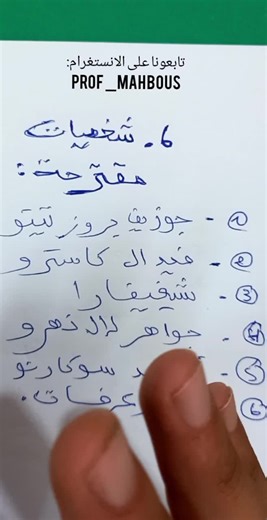 تابعونا على الانستغرام:
PROF_MAHBOUS
6. شخصيات
مقترحة:
① - جوزيف بروز تيتو
② - فيدال كاسترو
③ - شيفيفارا
④ - جواهر لال نهرو
⑤ - سوكارنو
⑥ عرفات.